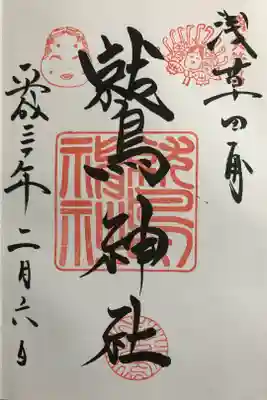 浅草田甫
鷲神社
平成三十年二月六日
鷲神社